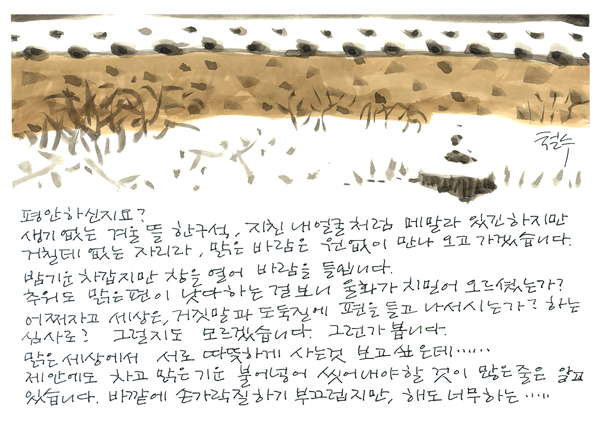 철수
편안하신지요?
생기없는 겨울 뜰 한구석, 지친 내얼굴처럼 메말라 있긴하지만
거칠데 없는 자리라, 맑은 바람은 원없이 만나 오고가겠습니다.
밤기운 차갑지만 창을 열어 바람을 들입니다.
추위도 맑은편이 낫다 하는 걸 보니 울화가 치밀어 오르셨는가?
어쩌자고 세상은, 거짓말과 도둑질에 편을들고 나서시는가? 하는
심사로? 그럴지도 모르겠습니다. 그런가 봅니다.
맑은세상에서 서로 따뜻하게 사는것 보고싶은데……
제안에도 차고 맑은기운 불어넣어 씻어내야할 것이 많은줄은 알고
있습니다. 바깥에 손가락질하기 부끄럽지만, 해도 너무하는……